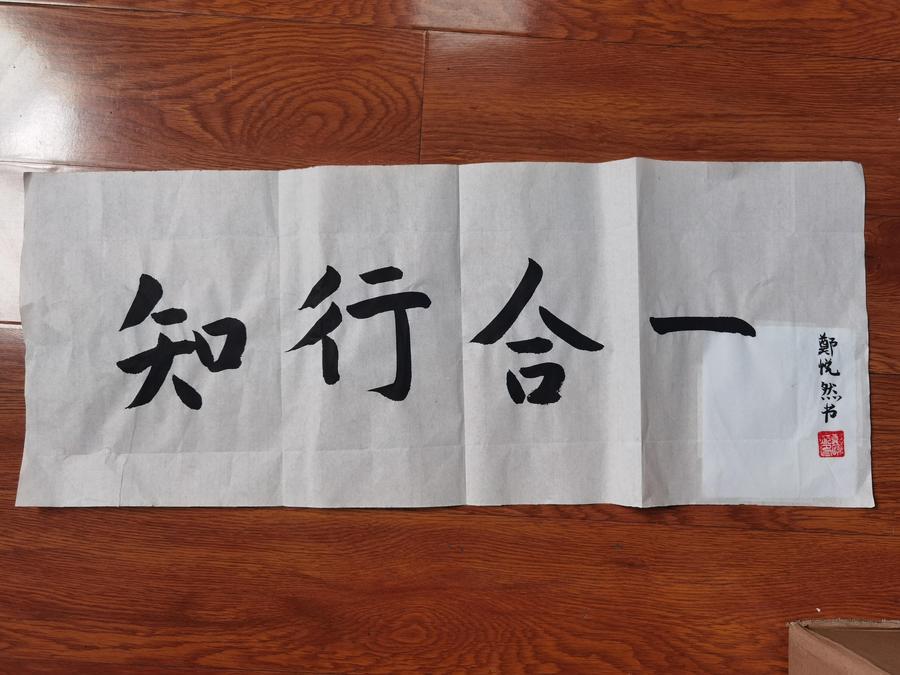 知行合一
鄭悦然书